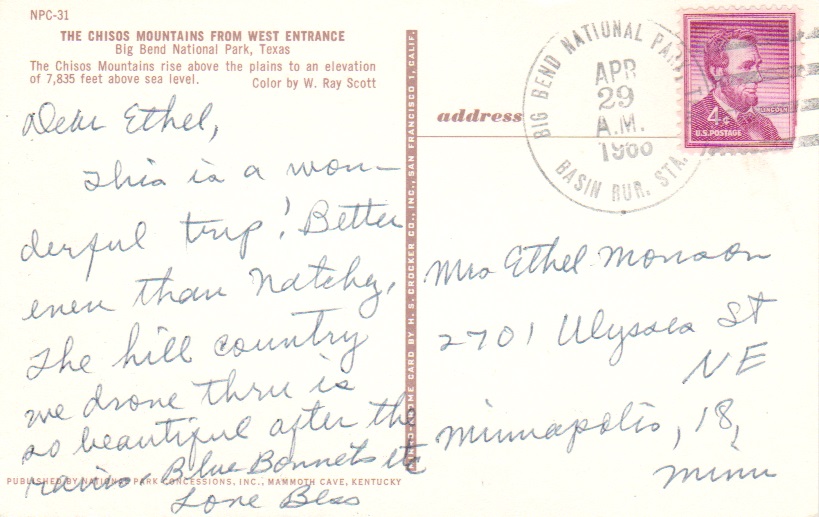 NPC-31
THE CHISOS MOUNTAINS FROM WEST ENTRANCE
Big Bend National Park, Texas
The Chisos Mountains rise above the plains to an elevation
of 7,835 feet above sea level. Color by W. Ray Scott
Dear Ethel,
This is a won-
derful trip! Better
even than Natchez,
The hill country
we drove thru is
so beautiful after the
rains. Blue Bonnets etc
Love Bess
PUBLISHED BY NATIONAL PARK CONCESSIONS, INC., MAMMOTH CAVE, KENTUCKY
CARD BY H. S. CROCKER CO., INC., SAN FRANCISCO 1, CALIF.
address
BIG BEND NATIONAL PARK
APR
29
A.M.
BASIN RUR. STA.
LINCOLN
4¢
U.S. POSTAGE
Mrs Ethel Monson
2701 Ulysses St
NE
Minneapolis, 18,
Minn